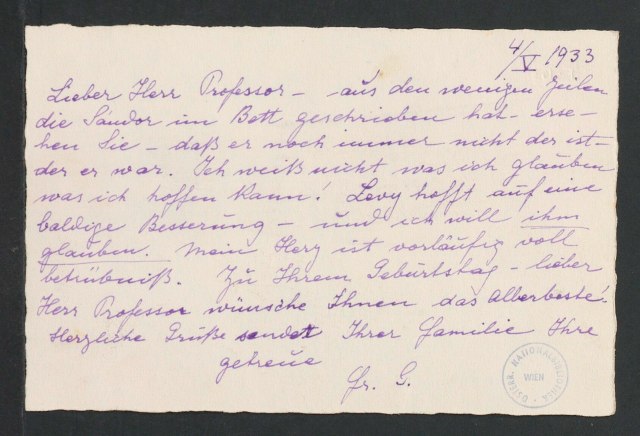 4/V 1933
Lieber Herr Professor – aus den wenigen Zeilen
die Sándor im Bett geschrieben hat – erse-
hen Sie – daß er noch immer nicht der ist –
der er war. Ich weiß nicht was ich glauben
was ich hoffen kann! Levy hofft auf eine
baldige Besserung – und ich will ihm
glauben. Mein Herz ist vorläufig voll
betrübniß. Zu Ihrem Geburtstag – lieber
Herr Professor wünsche Ihnen das Allerbeste!
Herzliche Grüße sendet Ihrer Familie Ihre
getreue
Fr. G.
ÖSTERR. NATIONALBIBLIOTHEK
WIEN